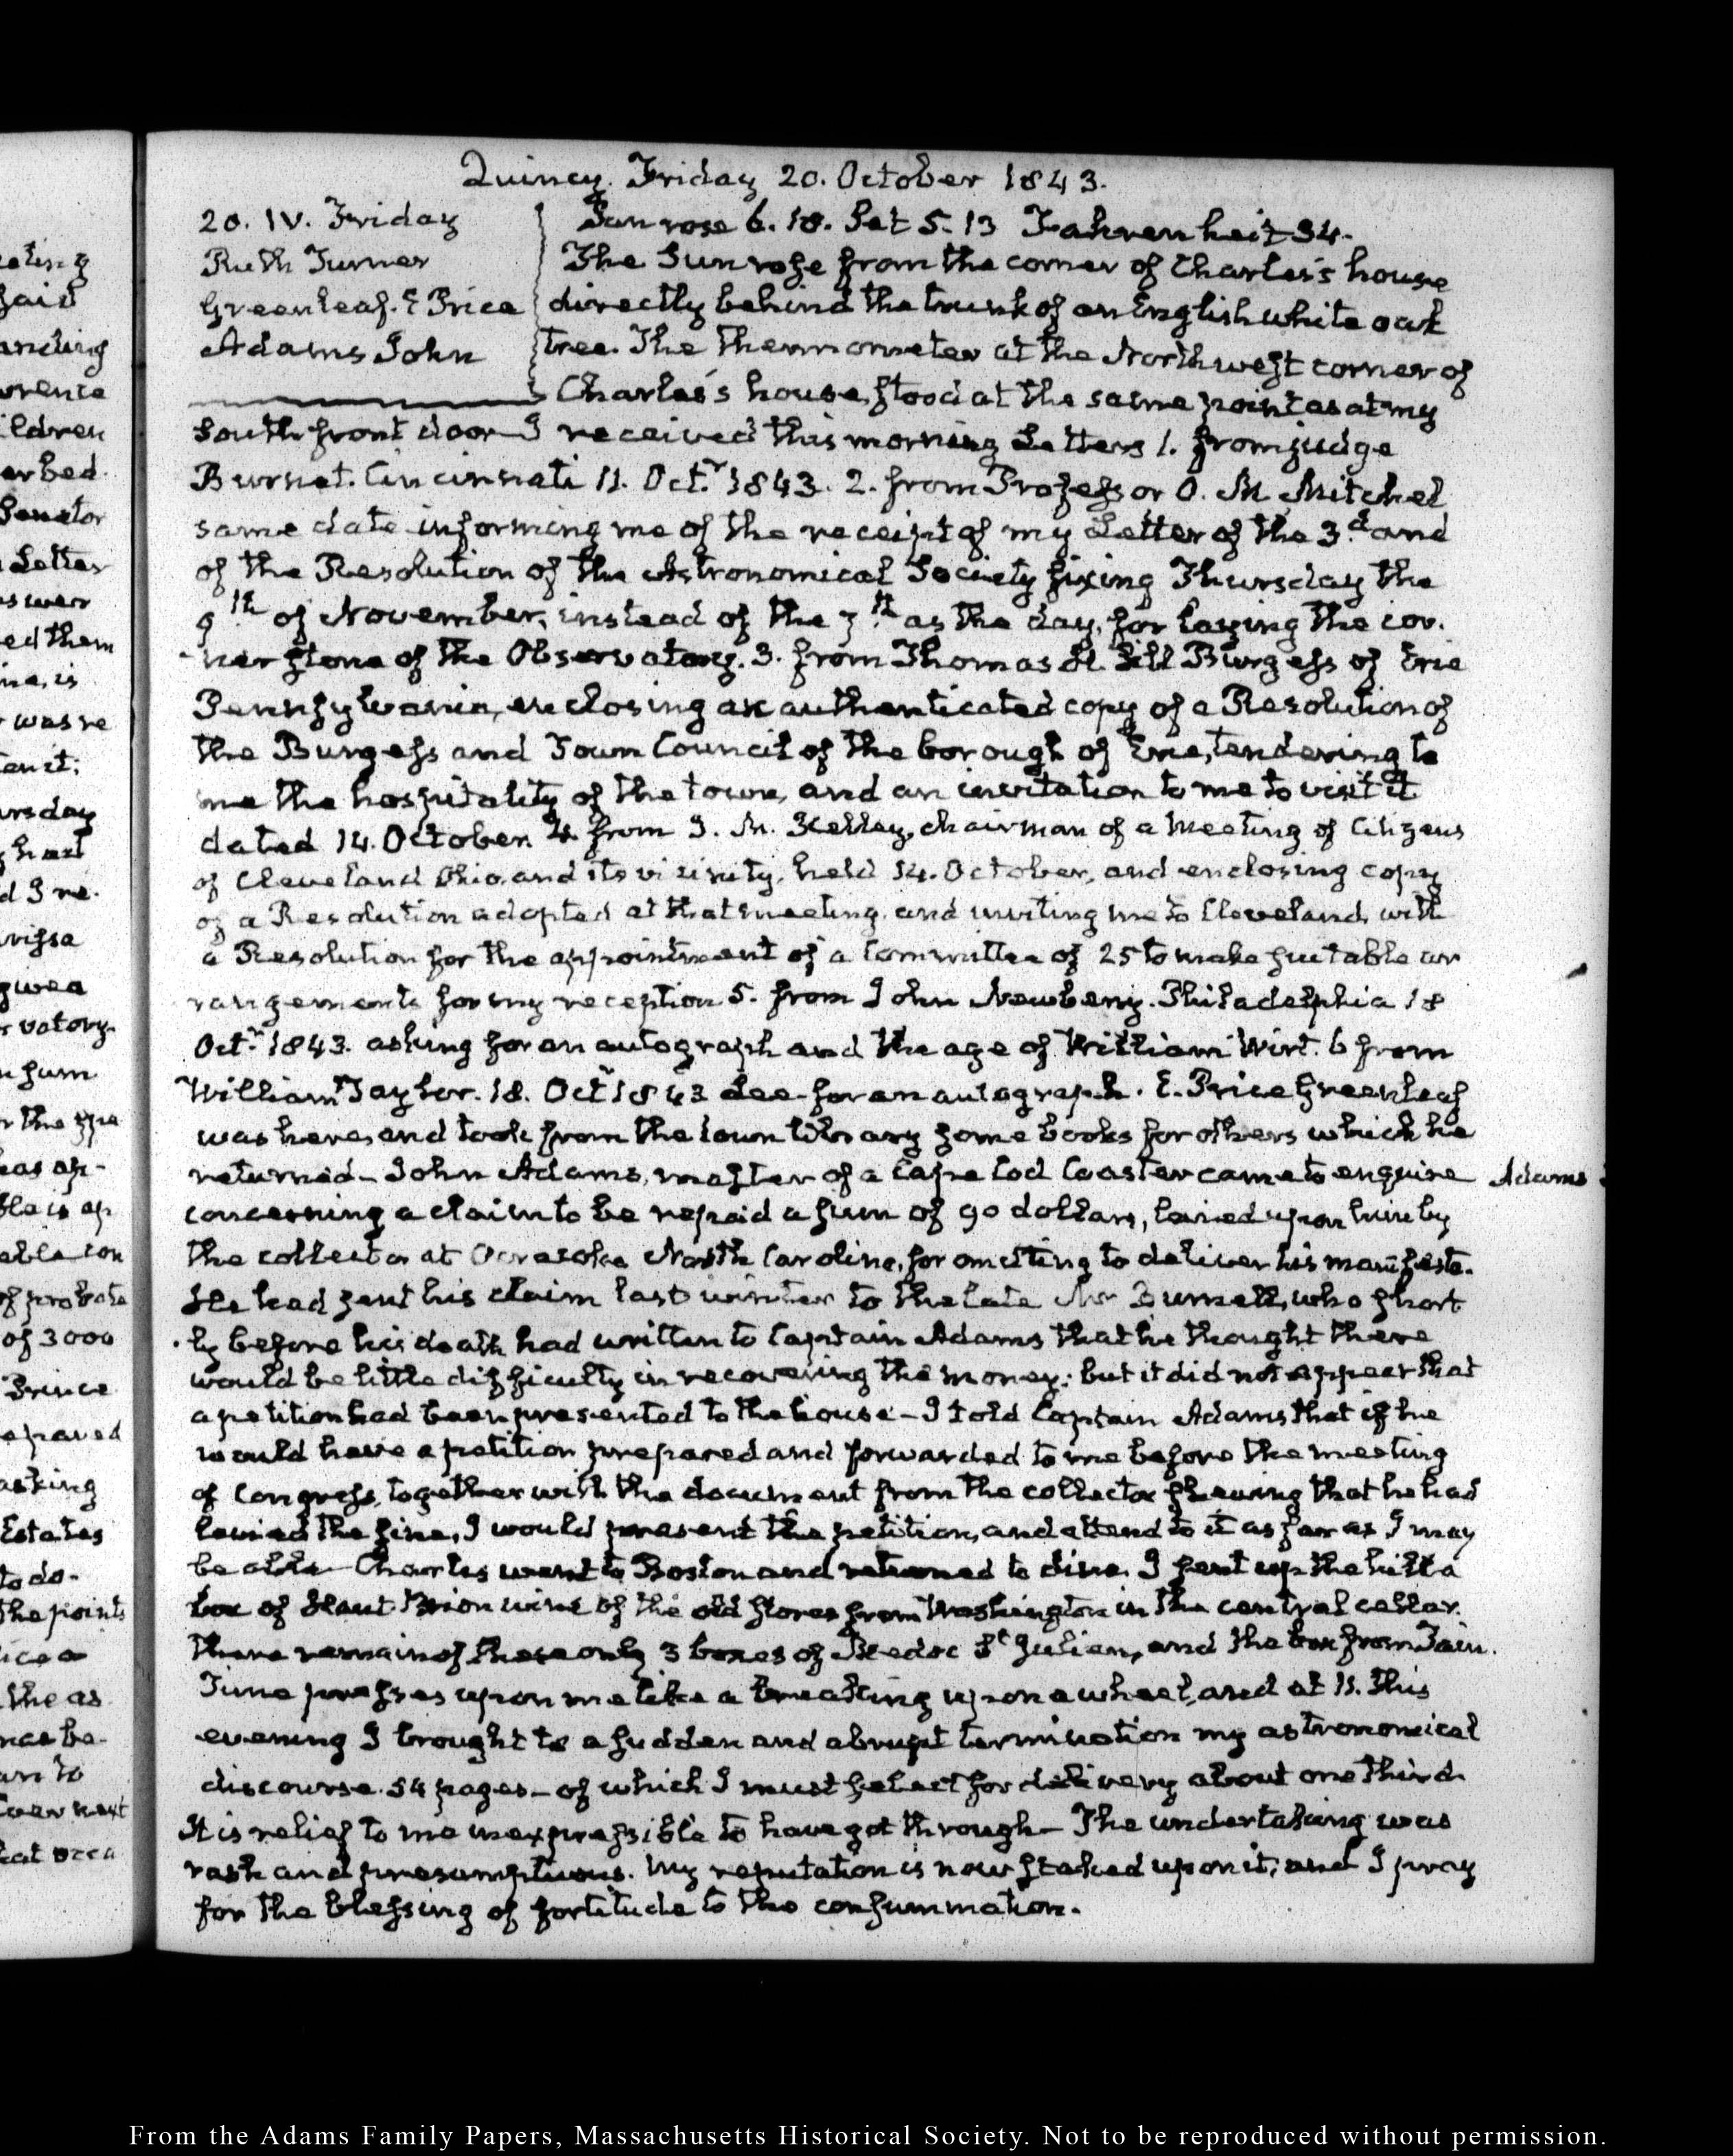 Quincy. Friday 20. October 1843.
20. IV. Friday
Ruth Turner
Greenleaf. E Price
Adams John
Sun rose 6. 18. Set 5. 13 Fahrenheit 34.
The Sun rose from the corner of Charles's house
directly behind the trunk of an English white oak
tree. The thermometer at the Northwest corner of
Charles's house, stood at the same point as at my
South front door — I received this morning Letters 1. from judge
Burnet. Cincinnati 11. Octr. 1843. 2. from Professor O. M. Mitchel
same date informing me of the receipt of my Letter of the 3d. and
of the Resolution of the Astronomical Society fixing Thursday the
9th of November, instead of the 7th as the day, for laying the cor-
-ner stone of the Observatory. 3. from Thomas H. Sill Burgess of Erie
Pennsylvania, enclosing an authenticated copy of a Resolution of
the Burgess and Town Council of the borough of Erie, tendering to
me the hospitality of the town, and an invitation to me to visit it
dated 14. October. 4. from J. M. Kelley, chairman of a Meeting of Citizens
of Cleveland Ohio, and its vicinity, held 14. October, and enclosing copy
of a Resolution adopted at that meeting, and inviting me to Cleveland, with
a Resolution for the appointment of a Committee of 25 to make suitable ar
rangements for my reception 5. from John Newberry. Philadelphia 18
Octr. 1843. asking for an autograph and the age of William Wirt. 6 from
William Taylor. 18. Octr 1843 for an autograph. E. Price Greenleaf
was here, and took from the town library some books for others which he
returned — John Adams, master of a Cape Cod Coaster came to enquire
Adams
concerning a claim to be repaid a sum of 90 dollars, levied upon him by
the collector at Ocracoke North Carolina, for omitting to deliver his manifeste.
He had sent his claim last winter to the late Mr Burnell, who short
-ly before his death had written to Captain Adams that he thought there
would be little difficulty in recovering the money: but it did not appear that
a petition had been presented to the house — I told Captain Adams that if he
would have a petition prepared and forwarded to me before the meeting
of Congress, together with the document from the collector shewing that he had
levied the fine, I would present the petition, and attend to it as far as I may
be able — Charles went to Boston and returned to dine. I sent up the hill a
box of Haut Brion wine of the old stores from Washington in the central cellar.
There remain of these only 3 boxes of Medoc St. Julien, and the box from Tain.
Time presses upon me like a breaking upon a wheel, and at 11. this
evening I brought to a sudden and abrupt termination my astronomical
discourse. 54 pages — of which I must select for delivery about one third.
It is relief to me inexpressible to have got through — The undertaking was
rash and presumptuous. My reputation is now staked upon it, and I pray
for the blessing of fortitude to the consummation.
From the Adams Family Papers, Massachusetts Historical Society. Not to be reproduced without permission.